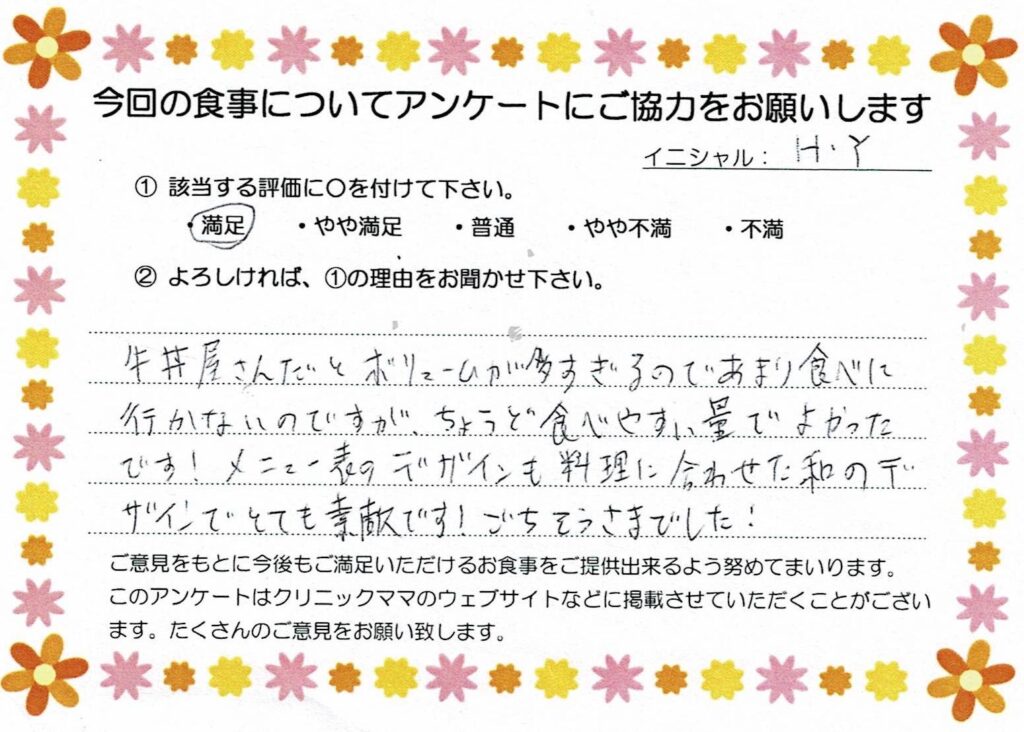 今回の食事についてアンケートにご協力をお願いします
イニシャル： H・Y
① 該当する評価に〇を付けて下さい。
・満足 ・やや満足 ・普通 ・やや不満 ・不満
② よろしければ、①の理由をお聞かせ下さい。
牛丼屋さんだとボリュームが多すぎるのであまり食べに
行かないのですが、ちょうど食べやすい量でよかった
です！メニュー表のデザインも料理に合わせた和のデ
ザインでとても素敵です！ごちそうさまでした！
ご意見をもとに今後もご満足いただけるお食事をご提供出来るよう努めてまいります。
このアンケートはクリニックママのウェブサイトなどに掲載させていただくことがござい
ます。たくさんのご意見をお願い致します。